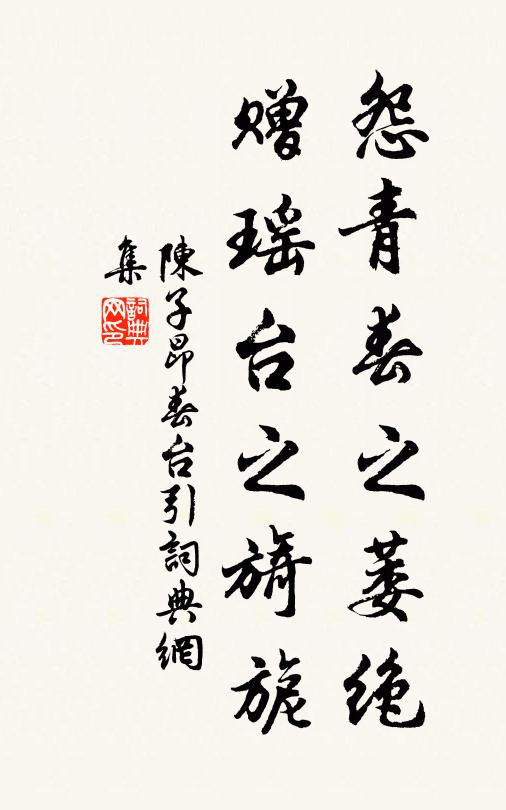 怨青春之萎绝
赠瑶台之旖旎
陳子昂春台引詞典網
集
詞典
网印